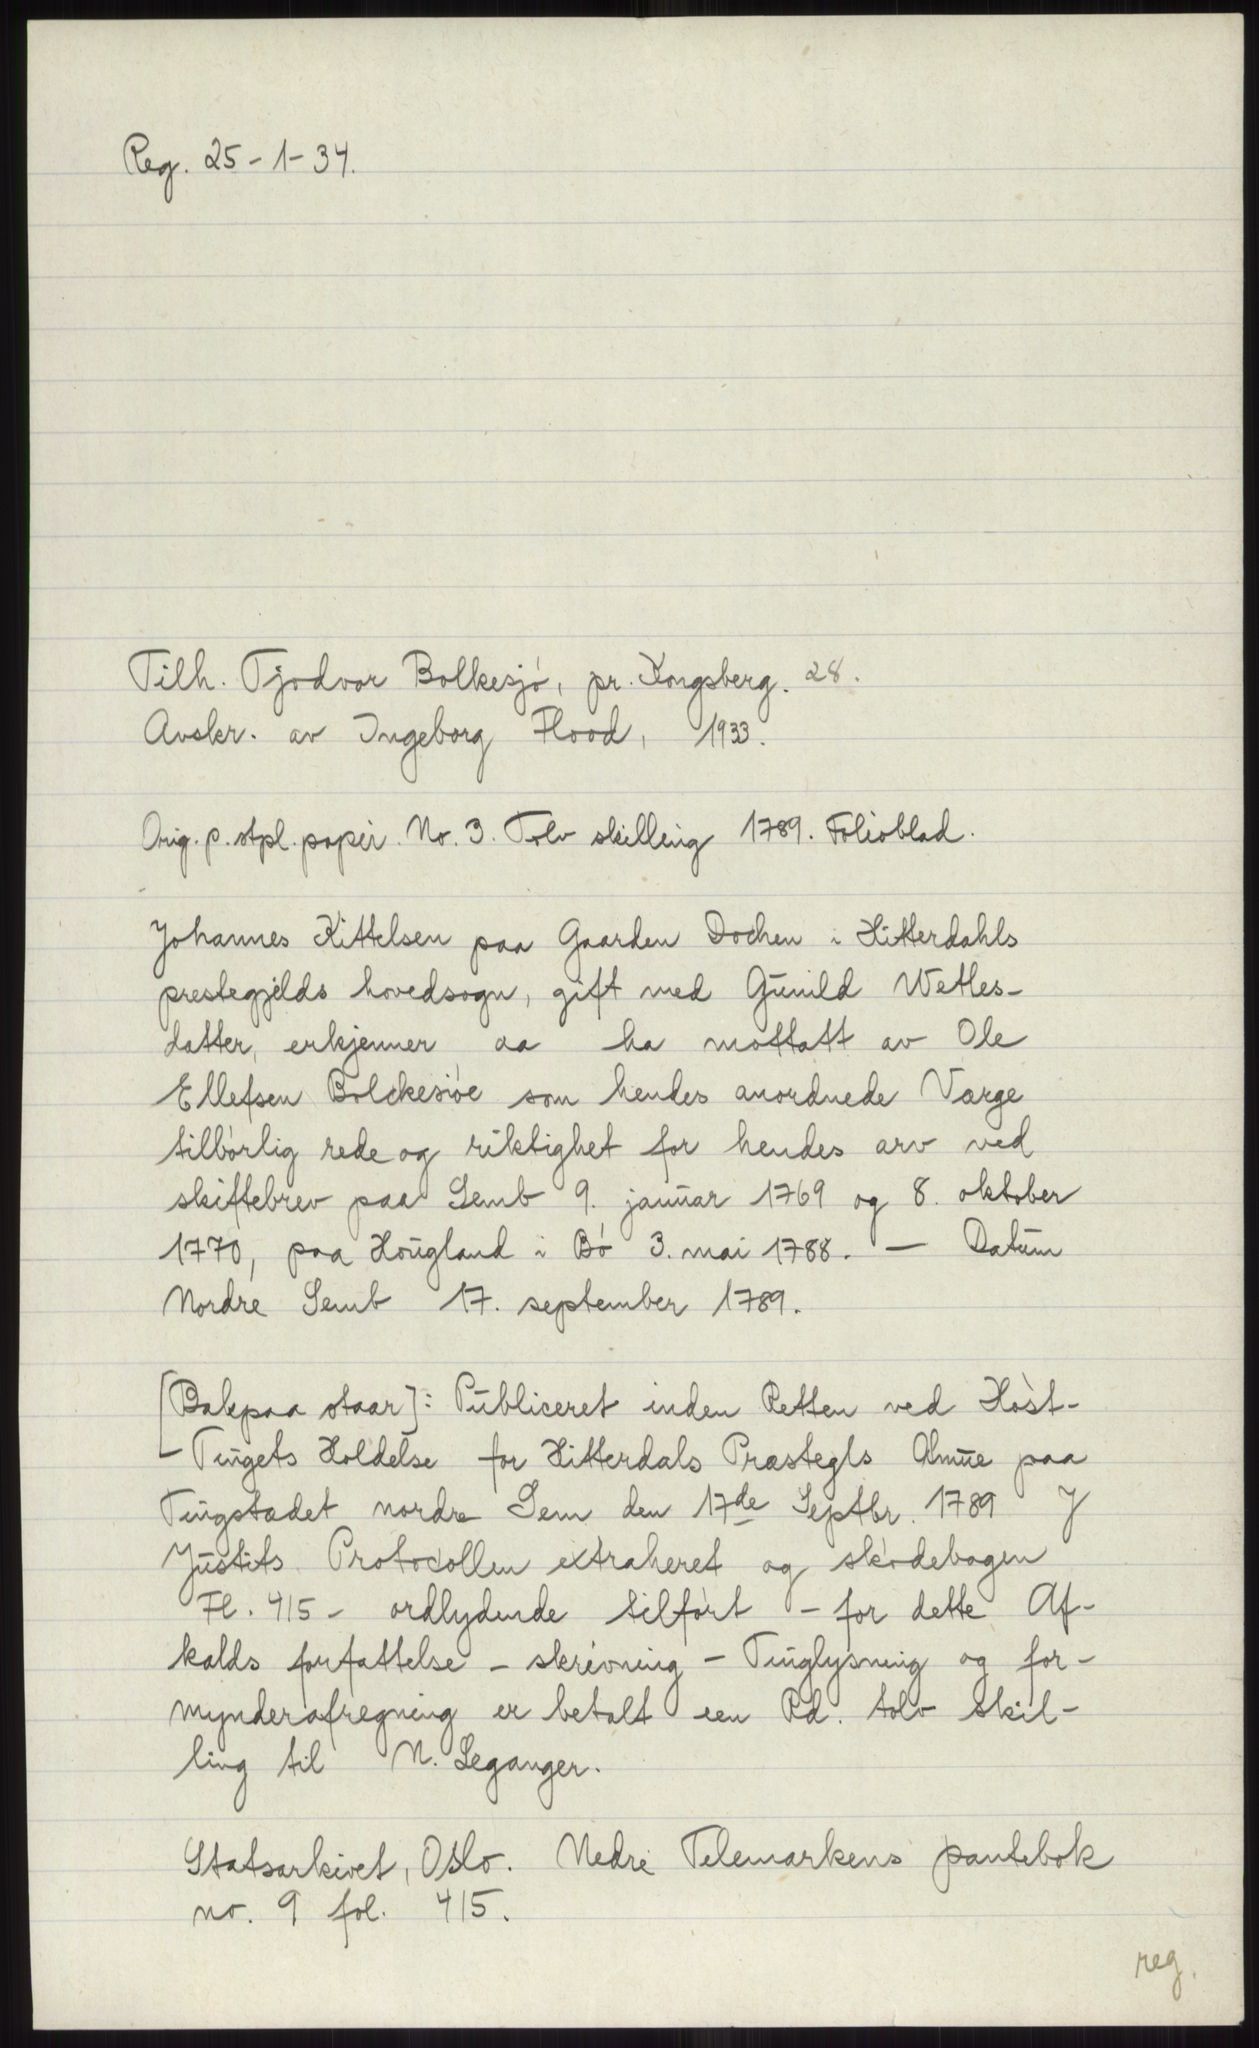 Reg. 25-1-34.
Tilh. Tjodvor Bolkesjó, pr. Kongsberg. 28.
Avskr. av Ingeborg Flood, 1933.
Orig. p. stpl. papir. No. 3. Tolv skilling 1789. Folioblad.
Johannes Kittelsen paa Gaarden Dochen i Hitterdahls
prestegjelds hovedsogn, gift med Gŭnild Wetles-
datter, erkjenner aa ha mottatt av Ole
Ellefsen Bolckesióe som hendes anordnede Værge
tilbórlig rede og riktighet for hendes arv ved
skiftebrev paa Semb 9. janŭar 1769 og 8. oktober
1770, paa Hoŭgland i Bó 3. mai 1788. — Datŭm
Nordre Semb 17. september 1789.
[Bakpaa staar]: Pŭbliceret inden Retten ved Hóst-
Tingets Holdelse for Hitterdals Præstegls Almŭe paa
Tingstædet nordre Sem den 17de Septbr. 1789 J
Jŭstits Protocollen extraheret og skódebogen
Fl. 415 - ordlydende tilfórt - for dette Af-
kalds forfattelse - skrivning - Tinglysning og for-
mynderafregning er betalt een Rd. tolv skil-
ling til N. Leganger.
Statsarkivet, Oslo. Nedre Telemarkens pantebok
no. 9 fol. 415.
reg.